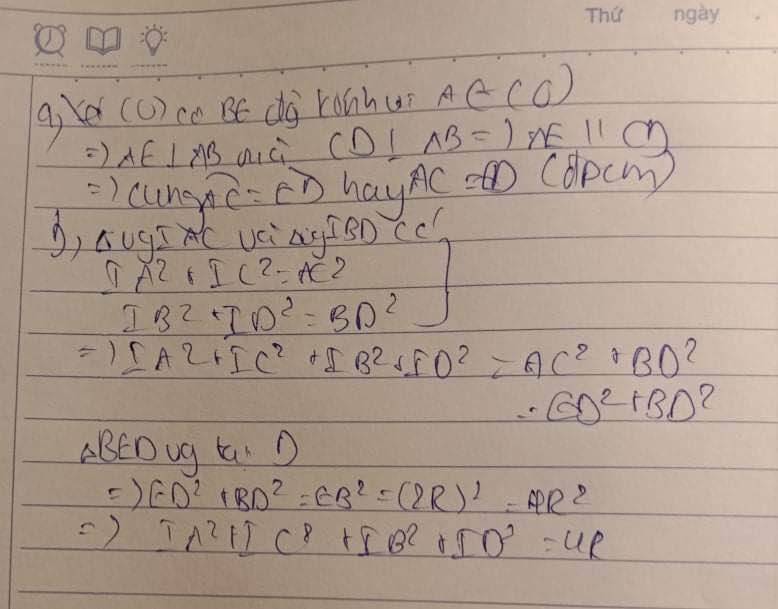 Thứ ngày .
a, Xét (O) có BE đg kính với A ∈ (O)
=) AE ⊥ AB mà CD ⊥ AB =) AE // CD
=) cung AC = ED hay AC = ED (đpcm)
b, Δ vg IAC và Δvg IBD có
IA² + IC² = AC²
IB² + ID² = BD²
=) IA² + IC² + IB² + ID² = AC² + BD²
= ED² + BD²
ΔBED vg tại D
=) ED² + BD² = EB² = (2R)² = 4R²
=) IA² + IC² + IB² + ID² = 4R